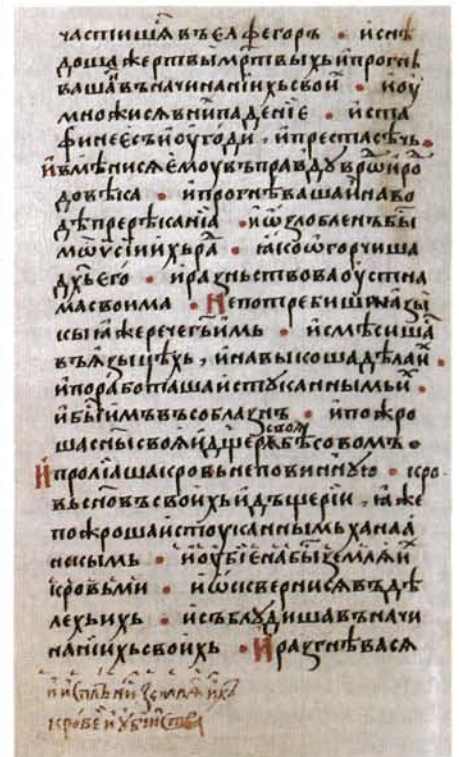 частишѧ въ еа фегоръ · и снѣ
доша жертвы мр҃твыхъ и прогнѣ
ваша и҆ въ начинанїихъ свои · и оу
множисѧ в ни падение · и ста
финеесъ и оугоди , и преста сѣчь ·
И вмѣнисѧ емоу въ правду в рѡ и ро
до вѣка · и прогнѣваша и на во
дѣ пререканїа · и ѡзлобленъ бы
мѡѵсїи ихъ ра · ꙗко ѡгорчиша
дх҃ъ его · и разньствова оустна
ма своима · Не потребишѧ ѧзы
кы ꙗже рече гь имь · и смѣсиша
въ ѧзыцѣхъ , и навыкоша дѣлаи ·
и поработаша истуканнымь и ·
и бы имъ въ соблазнъ · и пожро
ша сн҃ы своѧ и дщерѧ своѧ бѣсовомъ ·
И пролїаша кровь неповинную · кро
вь сн҃овъ своихъ и дъщерїи , ꙗже
пожроша истоуканнымь ханаа
нскымь · и оубїена бы землѧ и
кровьми · и ѡсквернисѧ въ дѣ
лехъ ихь · и съблудиша въ начи
нанїихъ своихь · И разгнѣвасѧ
и исплъни землѧ ихъ
кровеи убииства